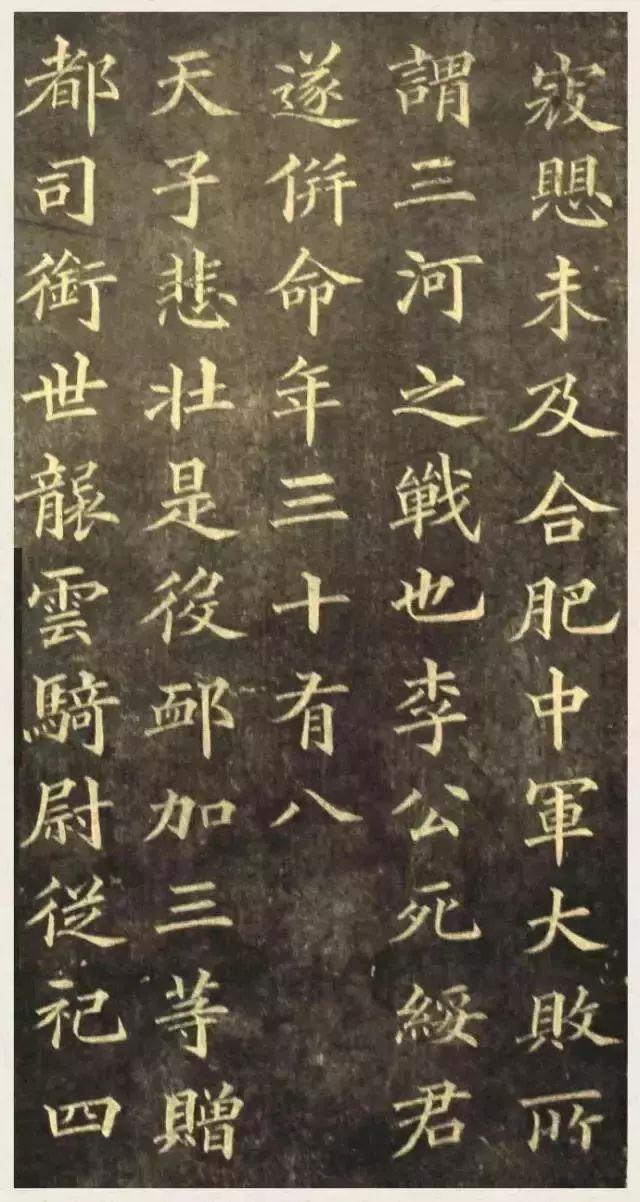 未及合肥中軍大敗所
謂三河之戰也李公死綏君
遂併命年三十有八
天子悲壯是役卹加三等贈
都司銜世襲雲騎尉從祀四